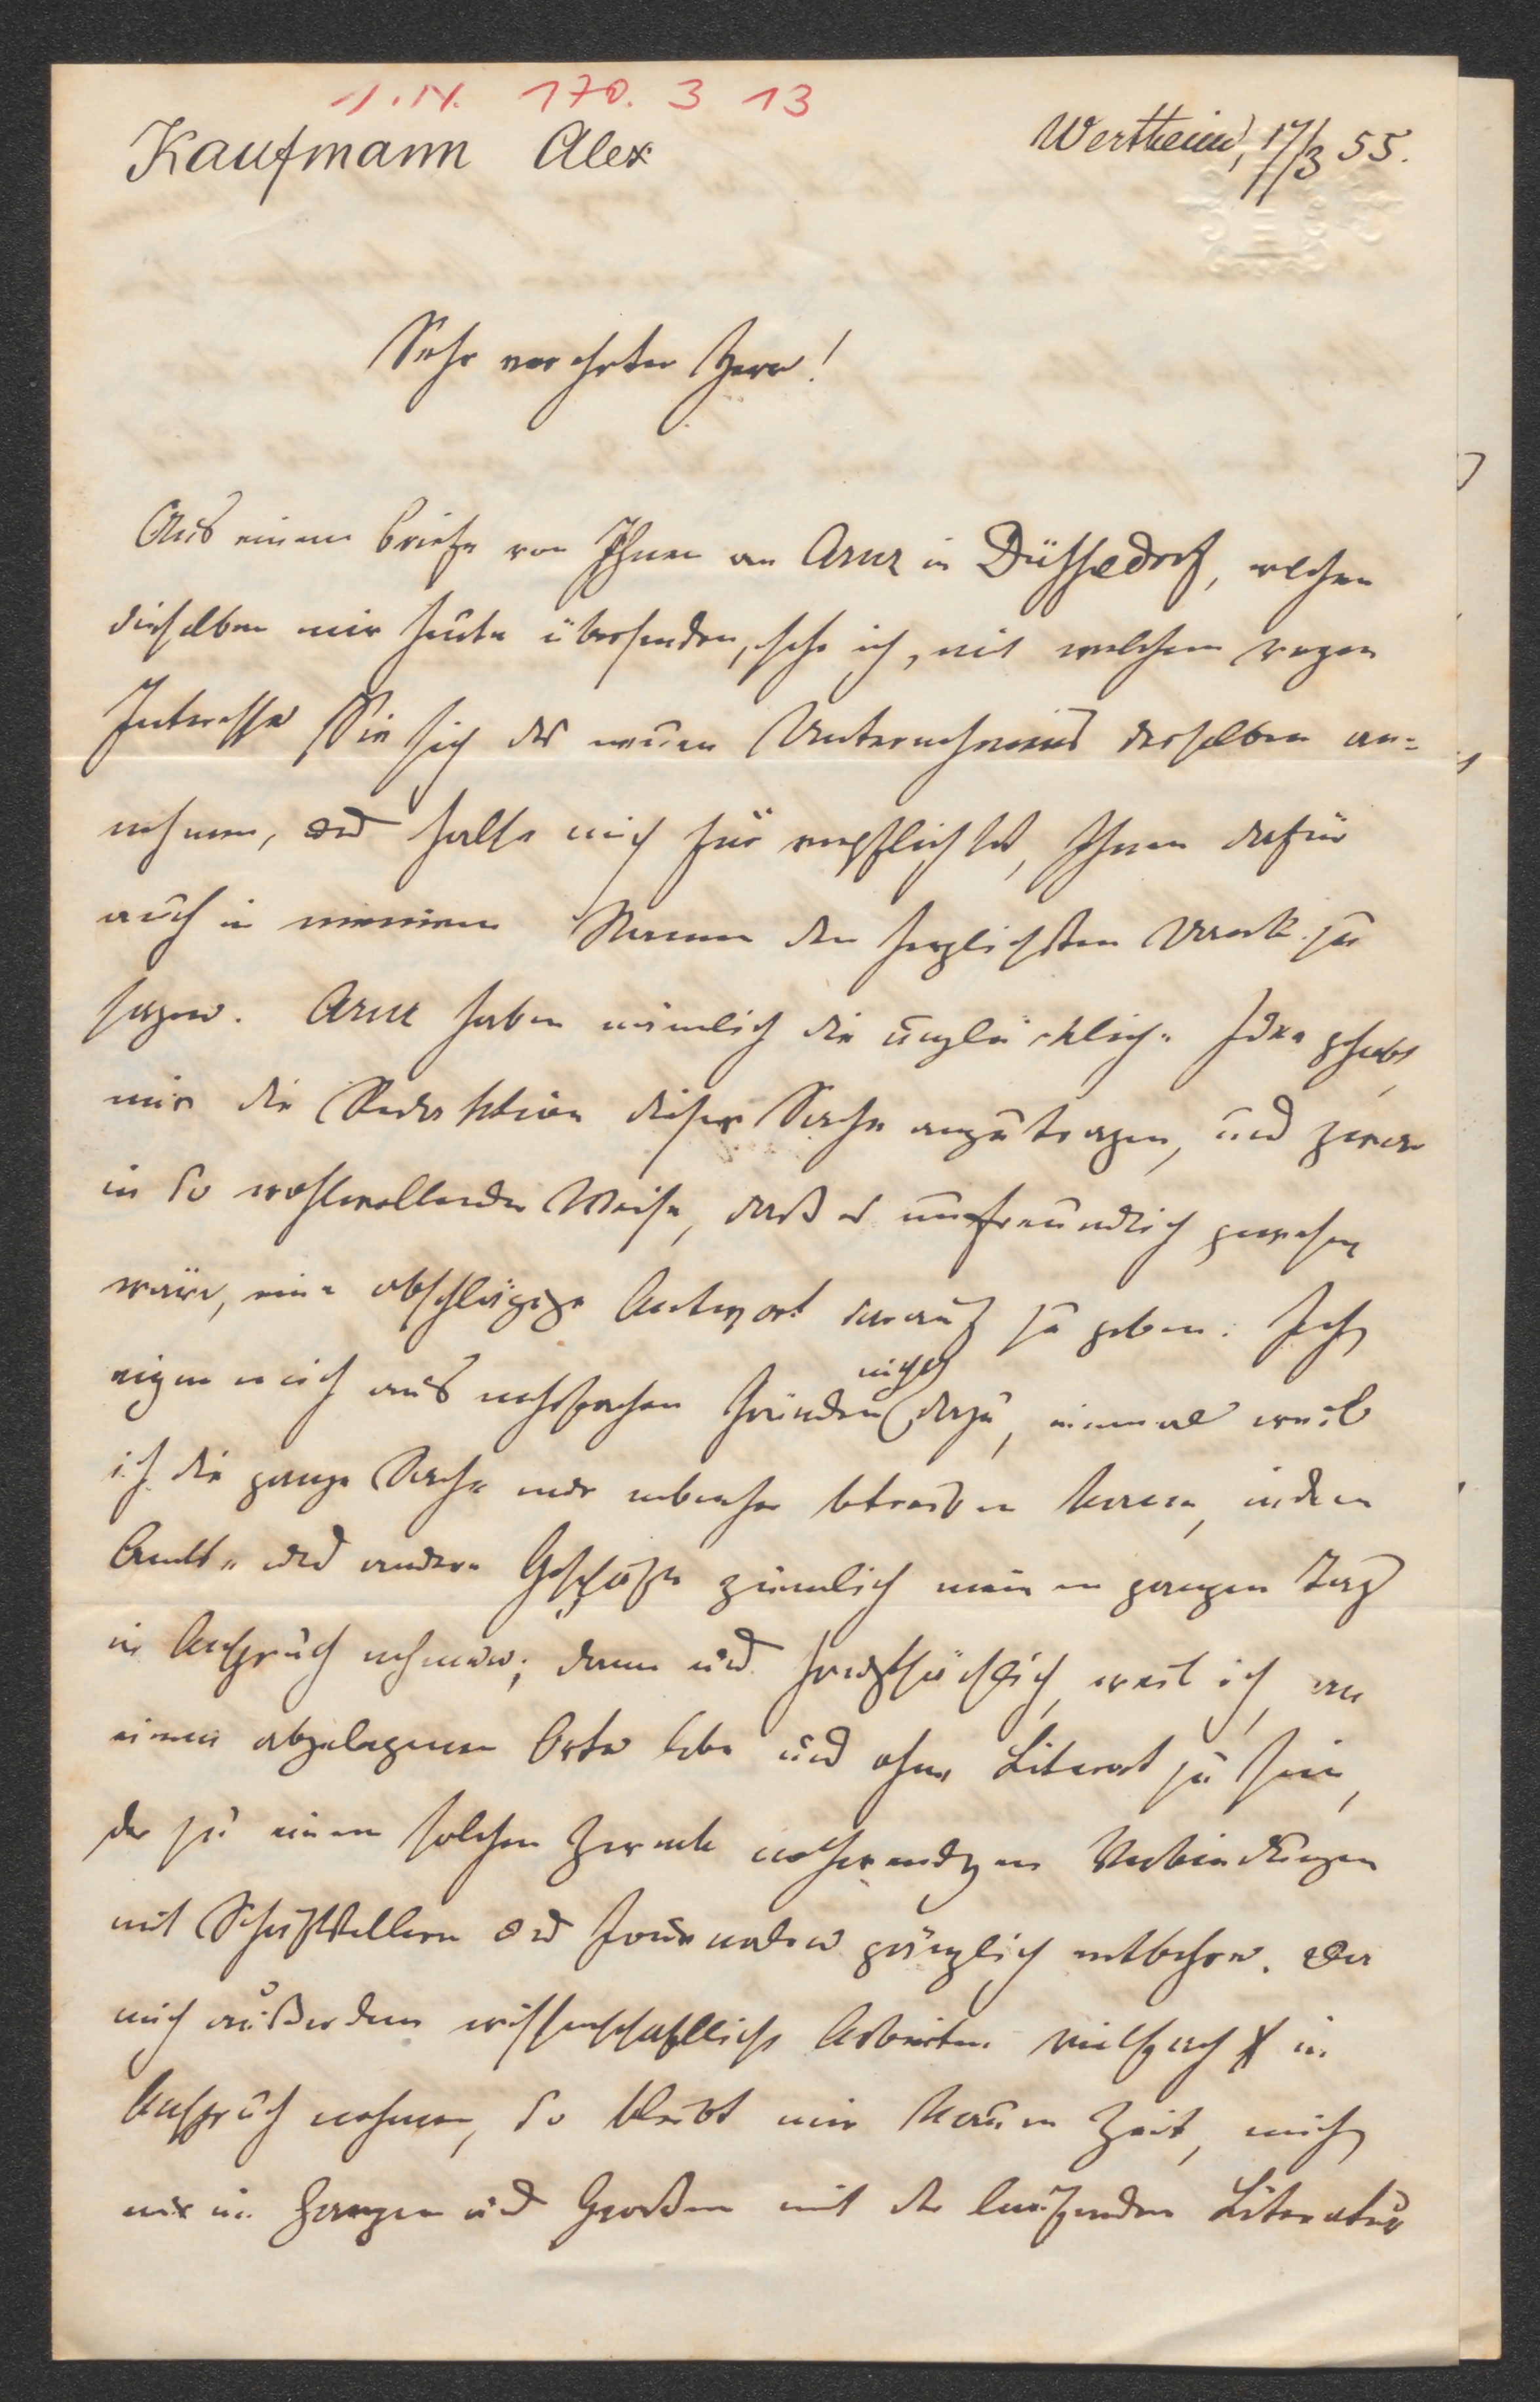 J. N. 170. 3 13
Kaufmann Alex
Wertheim, 17/3 55.
Sehr verehrter Herr!
Aus einem Briefe von Ihnen an Arnz in Düsseldorf, welchen
dieselben mir heute übersenden, sehe ich, mit welchem regen
Interesse Sie sich des neuen Unternehmens derselben an=
nehmen, und halte mich für verpflichtet, Ihnen dafür
auch in meinem Namen den herzlichsten Dank zu
sagen. Arnz haben nämlich die unglückliche Idee gehabt,
mir die Redaktion dieser Sache anzutragen, und zwar
in so wohlwollender Weise, daß es unfreundlich gewesen
wäre, eine abschlägige Antwort darauf zu geben. Ich
eigne mich aus mehrfachen Gründen nicht dazu, einmal weil
ich die ganze Sache nur nebenher betreiben kann, indem
Amts- und andere Geschäfte ziemlich meinen ganzen Tag
in Anspruch nehmen; dann und hauptsächlich, weil ich, an
einem abgelegenen Orte lebe und ohne Literat zu sein,
der zu einem solchen Zwecke nothwendigen Verbindungen
mit Schriftstellern und Journalen gänzlich entbehre. Da
mich außerdem wissenschaftliche Arbeiten vielfach in
Anspruch nehmen, so bleibt mir kaum Zeit, mich
nur im Ganzen und Großen mit der laufenden Literatur